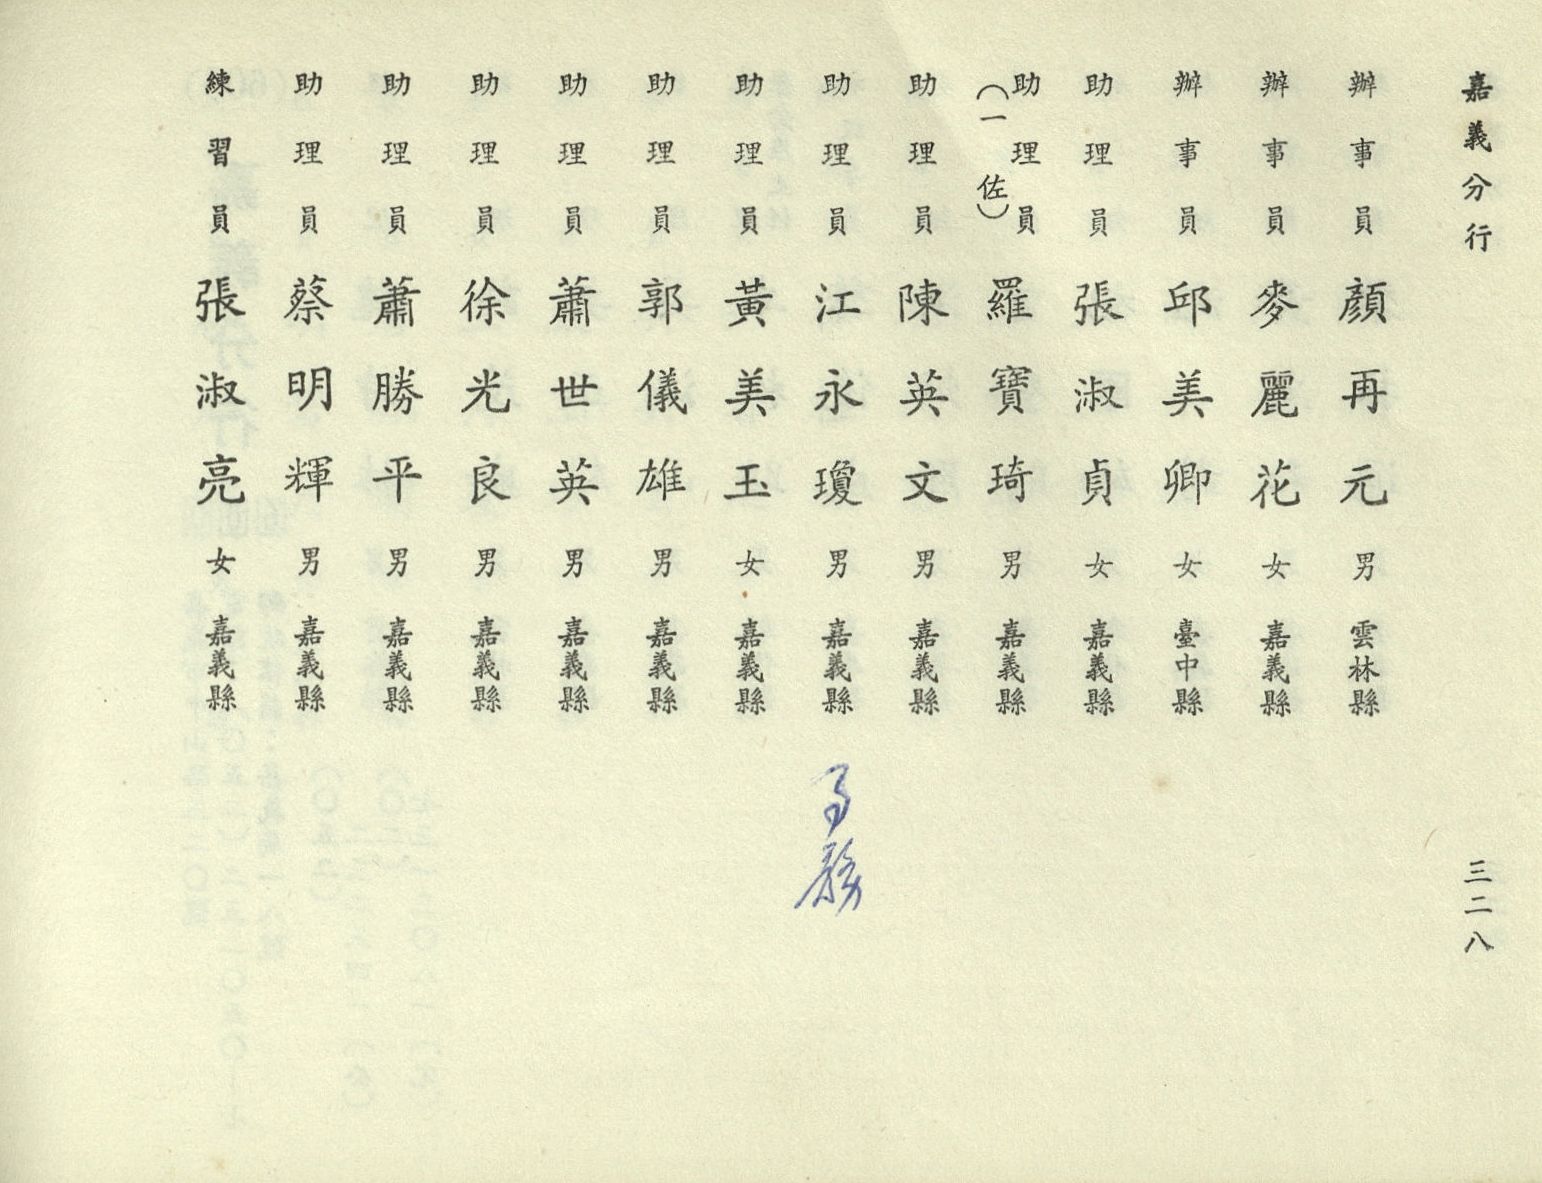 嘉義分行
三二八
辦事員 顏再元 男 雲林縣
辦事員 麥麗花 女 嘉義縣
辦事員 邱美卿 女 臺中縣
助理員 張淑貞 女 嘉義縣
助理員(一佐) 羅寶琦 男 嘉義縣
助理員 陳英文 男 嘉義縣
助理員 江永瓊 男 嘉義縣
助理員 黃美玉 女 嘉義縣
助理員 郭儀雄 男 嘉義縣
助理員 蕭世英 男 嘉義縣
助理員 徐光良 男 嘉義縣
助理員 蕭勝平 男 嘉義縣
助理員 蔡明輝 男 嘉義縣
練習員 張淑亮 女 嘉義縣